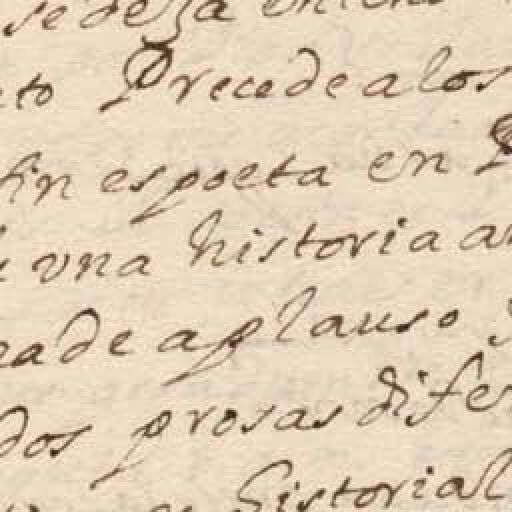 se deҫa
eto Precede a los
fin es poeta en
vna historia
ea de aplauso
dos prosas dife
historial